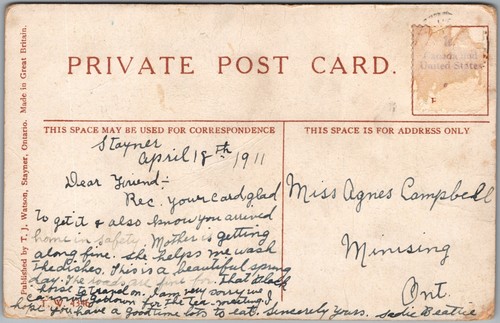 PRIVATE POST CARD.
Canada and
United States
THIS SPACE MAY BE USED FOR CORRESPONDENCE
THIS SPACE IS FOR ADDRESS ONLY
Published by T. J. Watson, Stayner, Ontario. Made in Great Britain.
Stayner
April 18th 1911
Dear Friend:-
Rec. your card glad
to get it & also know you arrived
home in safety. Mother is getting
along fine. she helps me wash
the dishes. This is a beautiful spring
day. The roads are fine for that black
horse to travel on. I am very sorry we
cannot go down for the tea-meeting. I
hope you have a good time lots to eat. Sincerely Yours. Sadie Beatrice
Miss Agnes Campbell
Minising
Ont.